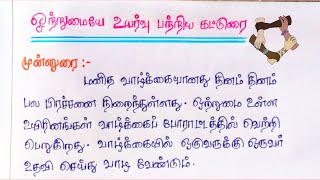 ஒற்றுமையே உயர்வு பற்றிய கட்டுரை
முன்னுரை :-
மனித வாழ்க்கையானது தினம் தினம்
பல பிரச்சனை நிறைந்துள்ளது. ஒற்றுமை உள்ள
உயிரினங்கள் வாழ்க்கைப் போராட்டத்தில் வெற்றி
பெறுகிறது. வாழ்க்கையில் ஒருவருக்கு ஒருவர்
உதவி செய்து வாழ வேண்டும்.